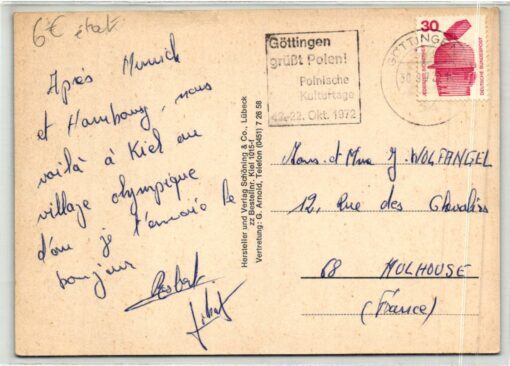 6€ état
Après Munich
et Hambourg, nous
voilà à Kiel au
village olympique
d'ou je t'envoie le
bonjour
Hersteller und Verlag Schöning & Co., Lübeck
zz Bestellnr. Kiel 1015-f
Vertretung: G. Arnold, Telefon (0451) 7 26 58
Göttingen
grüßt Polen!
Polnische
Kulturtage
22. Okt. 1972
GÖTTINGEN
30
DEUTSCHE BUNDESPOST
Mons. et Mme J. WOLFANGEL
12, Rue des Chevaliers
68 MULHOUSE
(France)